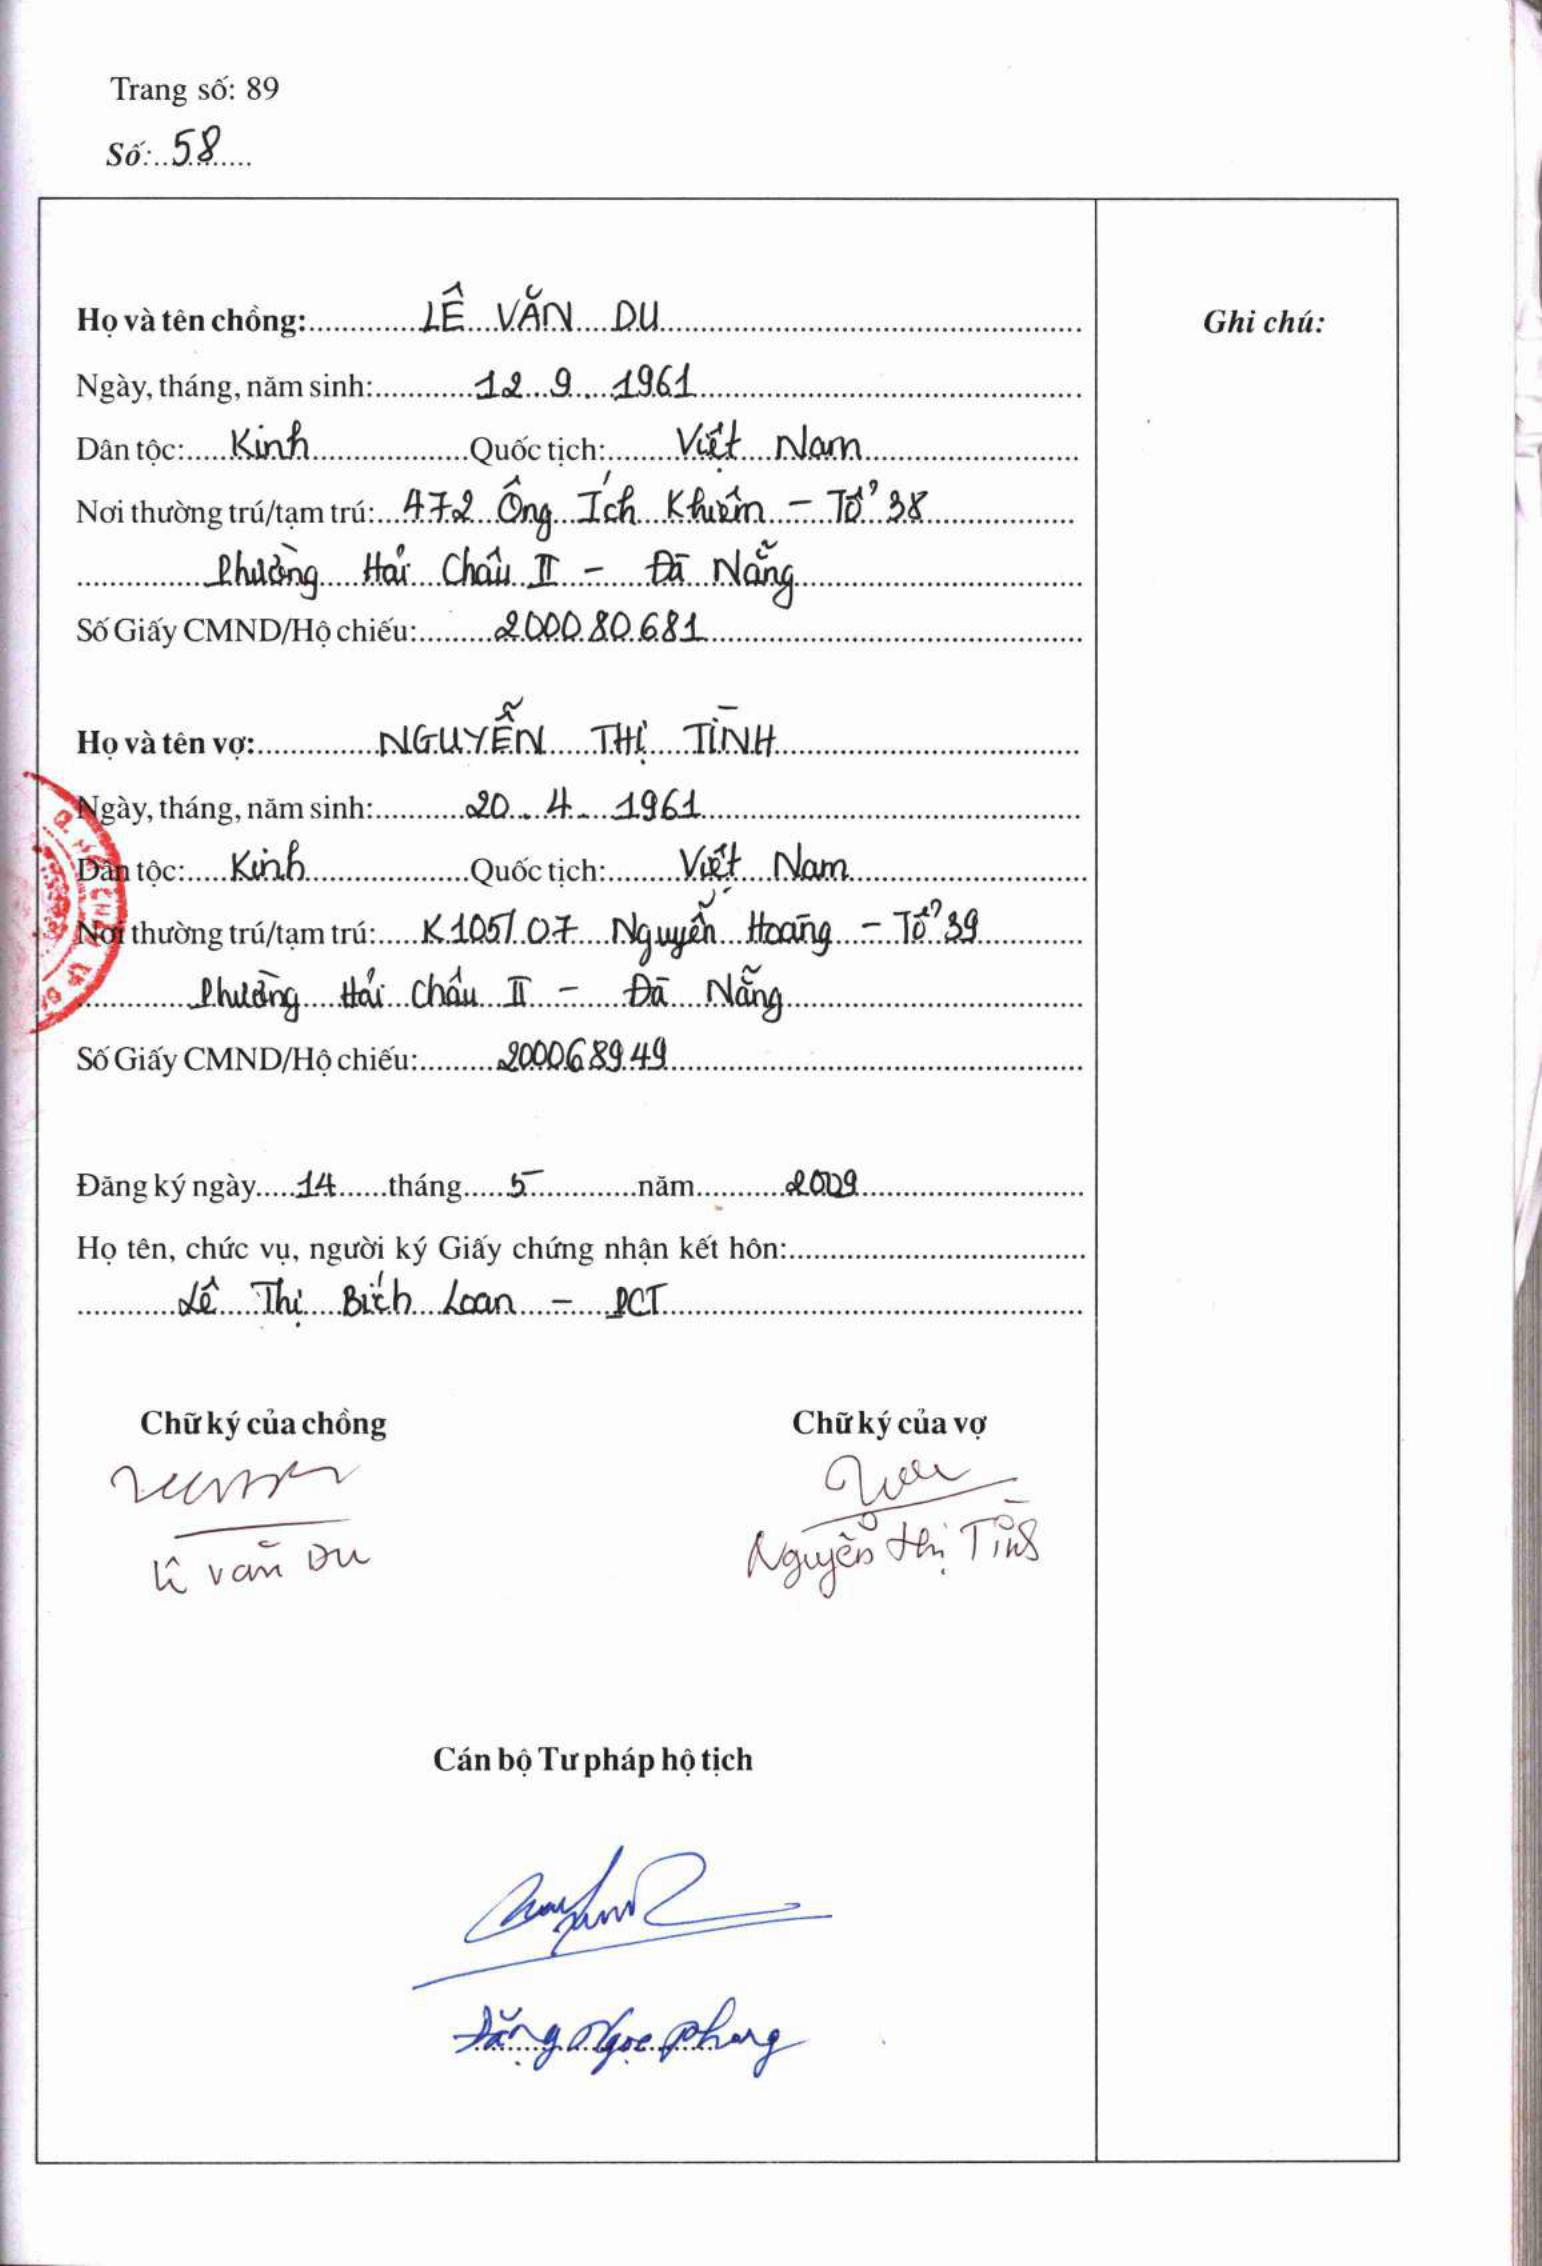 Trang số: 89
Số: 58
Họ và tên chồng: LÊ VĂN DU
Ghi chú:
Ngày, tháng, năm sinh: 12 . 9 . 1961
Dân tộc: Kinh Quốc tịch: Việt Nam
Nơi thường trú/tạm trú: 472 Ông Ích Khiêm - Tổ 38
Phường Hải Châu II - Đà Nẵng
Số Giấy CMND/Hộ chiếu: 200080681
Họ và tên vợ: NGUYỄN THỊ TÌNH
Ngày, tháng, năm sinh: 20 . 4 . 1961
Dân tộc: Kinh Quốc tịch: Việt Nam
Nơi thường trú/tạm trú: K105/07 Nguyễn Hoàng - Tổ 39
Phường Hải Châu II - Đà Nẵng
Số Giấy CMND/Hộ chiếu: 200068949
Đăng ký ngày 14 tháng 5 năm 2009
Họ tên, chức vụ, người ký Giấy chứng nhận kết hôn:
Lê Thị Bích Loan - PCT
Chữ ký của chồng Chữ ký của vợ
Lê Văn Du Nguyễn Thị Tình
Cán bộ Tư pháp hộ tịch
Đặng Ngọc Phong